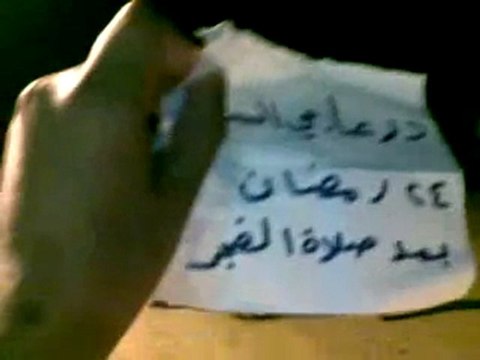 درعا حي
٢٤ رمضان
بعد صلاة الفجر